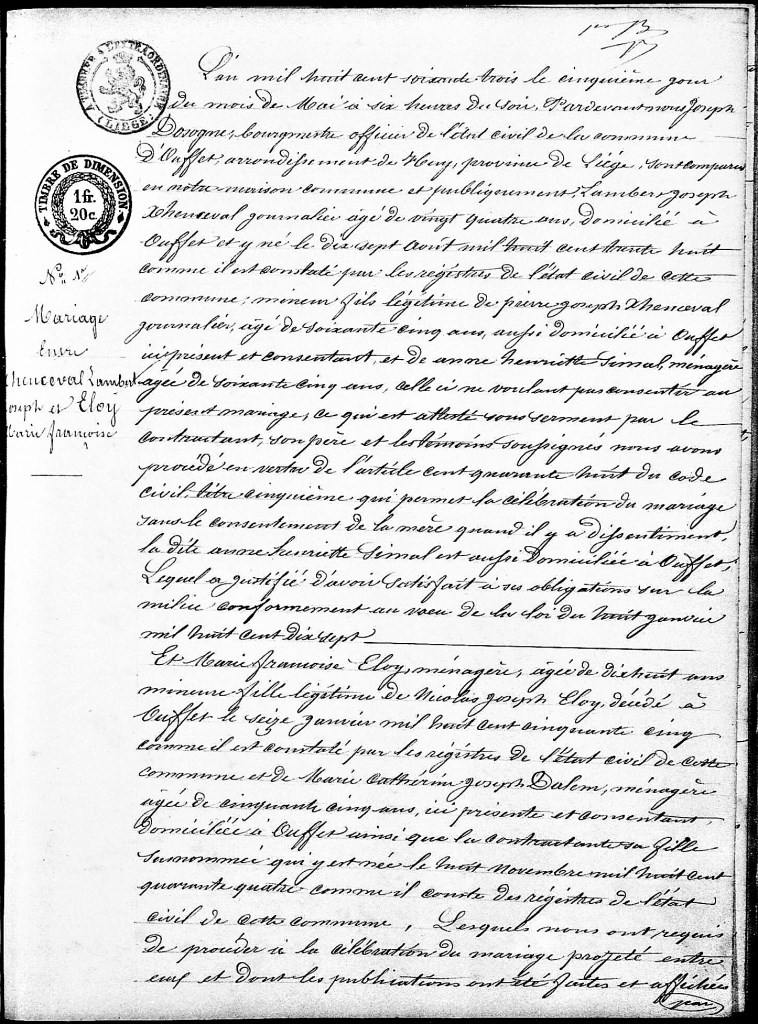 A L'EXTRAORDINAIRE
(LIÈGE)
TIMBRE DE DIMENSION
1 fr.
20 c.
N° 1er
Mariage
Entre
Xhenceval Lambert
Joseph et Eloy
Marie françoise
L'an mil huit cent soixante trois le cinquième jour
du mois de Mai à six heures du soir, Pardevant nous Joseph
Dosogne, bourgmestre officier de l'état civil de la commune
D'Ouffet, arrondissement de Huy, province de Liége, sont comparus
en notre maison commune et publiquement, Lambert Joseph
Xhenceval journalier âgé de vingt quatre ans, domicilié à
Ouffet et y né le dix sept Aout mil huit cent trente huit
comme il est constaté par les régistres de l'état civil de cette
commune; mineur fils légitime de pierre Joseph Xhenceval
journalier, âgé de soixante cinq ans, aussi domicilié à Ouffet
ici présent et consentant, et de anne henriette Simal, ménagère
agée de soixante cinq ans, celle ci ne voulant pas consenter au
présent mariage, ce qui est attesté sous serment par le
contractant, son père et les témoins soussignés nous avons
procédé en vertu de l'article cent quarante huit du code
civil, titre cinquième qui permet la célébration du mariage
sans le consentement de la mère quand il y a dissentiment,
la dite anne henriette Simal est aussi domiciliée à Ouffet,
Lequel a justifié d'avoir satisfait à ses obligations sur la
milice conformement au voeu de la loi du huit janvier
mil huit cent dix sept
Et Marie françoise Eloy, ménagère, agée de dix huit ans
mineure fille légitime de Nicolas Joseph Eloy, décédé à
Ouffet le seize janvier mil huit cent cinquante cinq
comme il est constaté par les régistres de l'état civil de cette
commune et de Marie Catherine Joseph Dalem, ménagère
âgée de cinquante cinq ans, ici présente et consentant,
domiciliée à Ouffet ainsi que la contractante sa fille
susnommée qui y est née le huit Novembre mil huit cent
quarante quatre comme il conste des régistres de l'état
civil de cette commune, Lesquels nous ont requis
de procéder à la célébration du mariage projeté entre
eux et dont les publications ont été faites et affichées
par